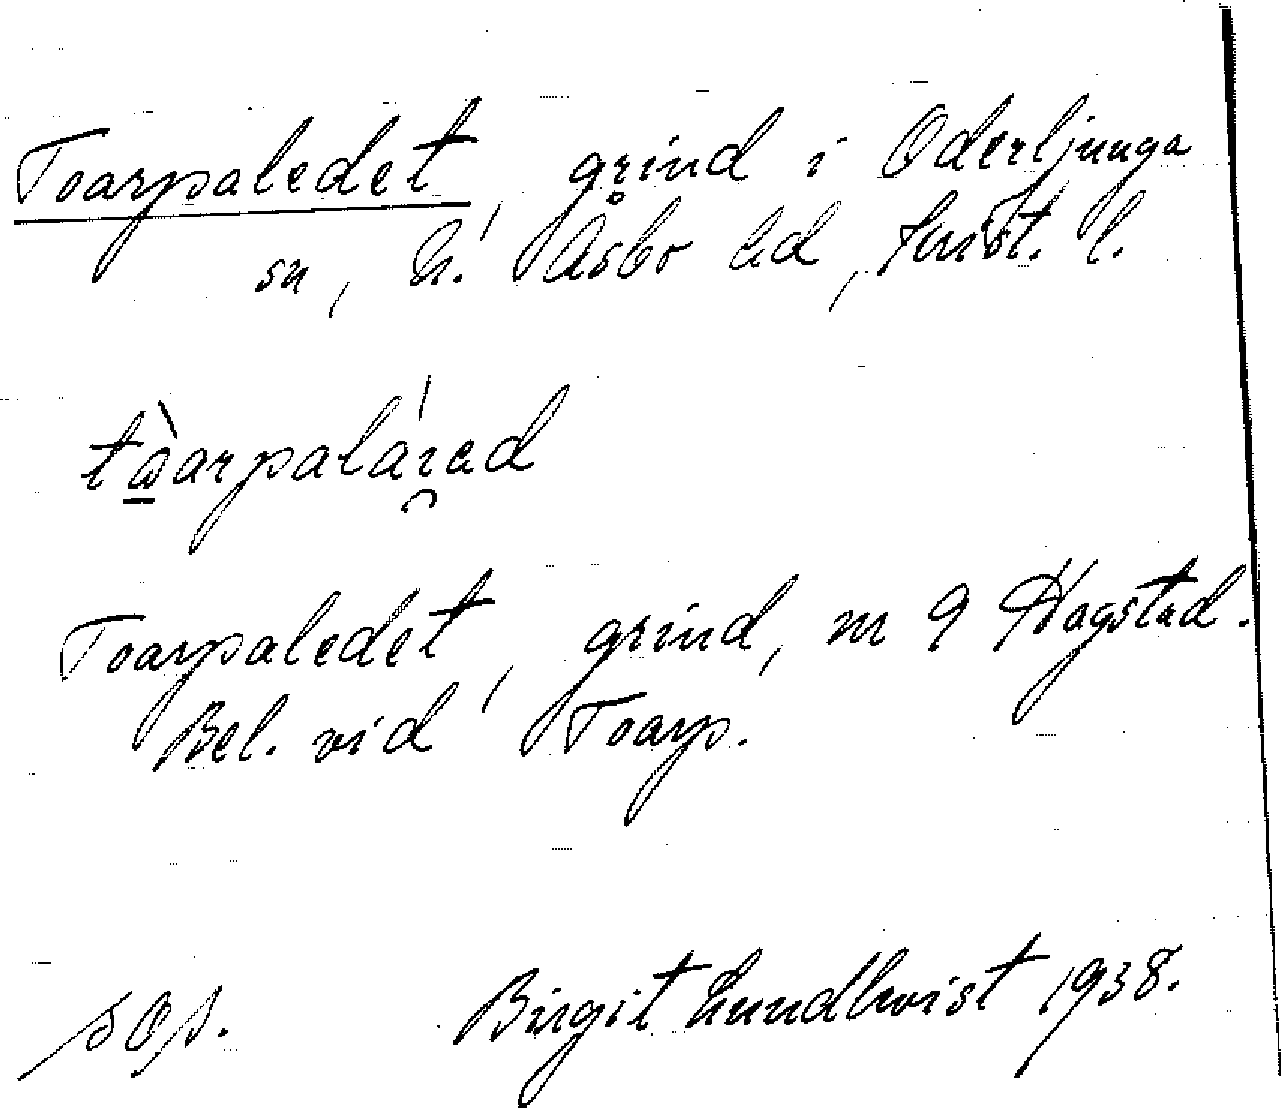 Toarpaledet, grind i Oderljunga
sn, N. Åsbo hd, Krist. l.
Toarpaledet, grind, nr 9 Hagstad.
Bel. vid Toarp.
Birgit Lundkvist 1938.